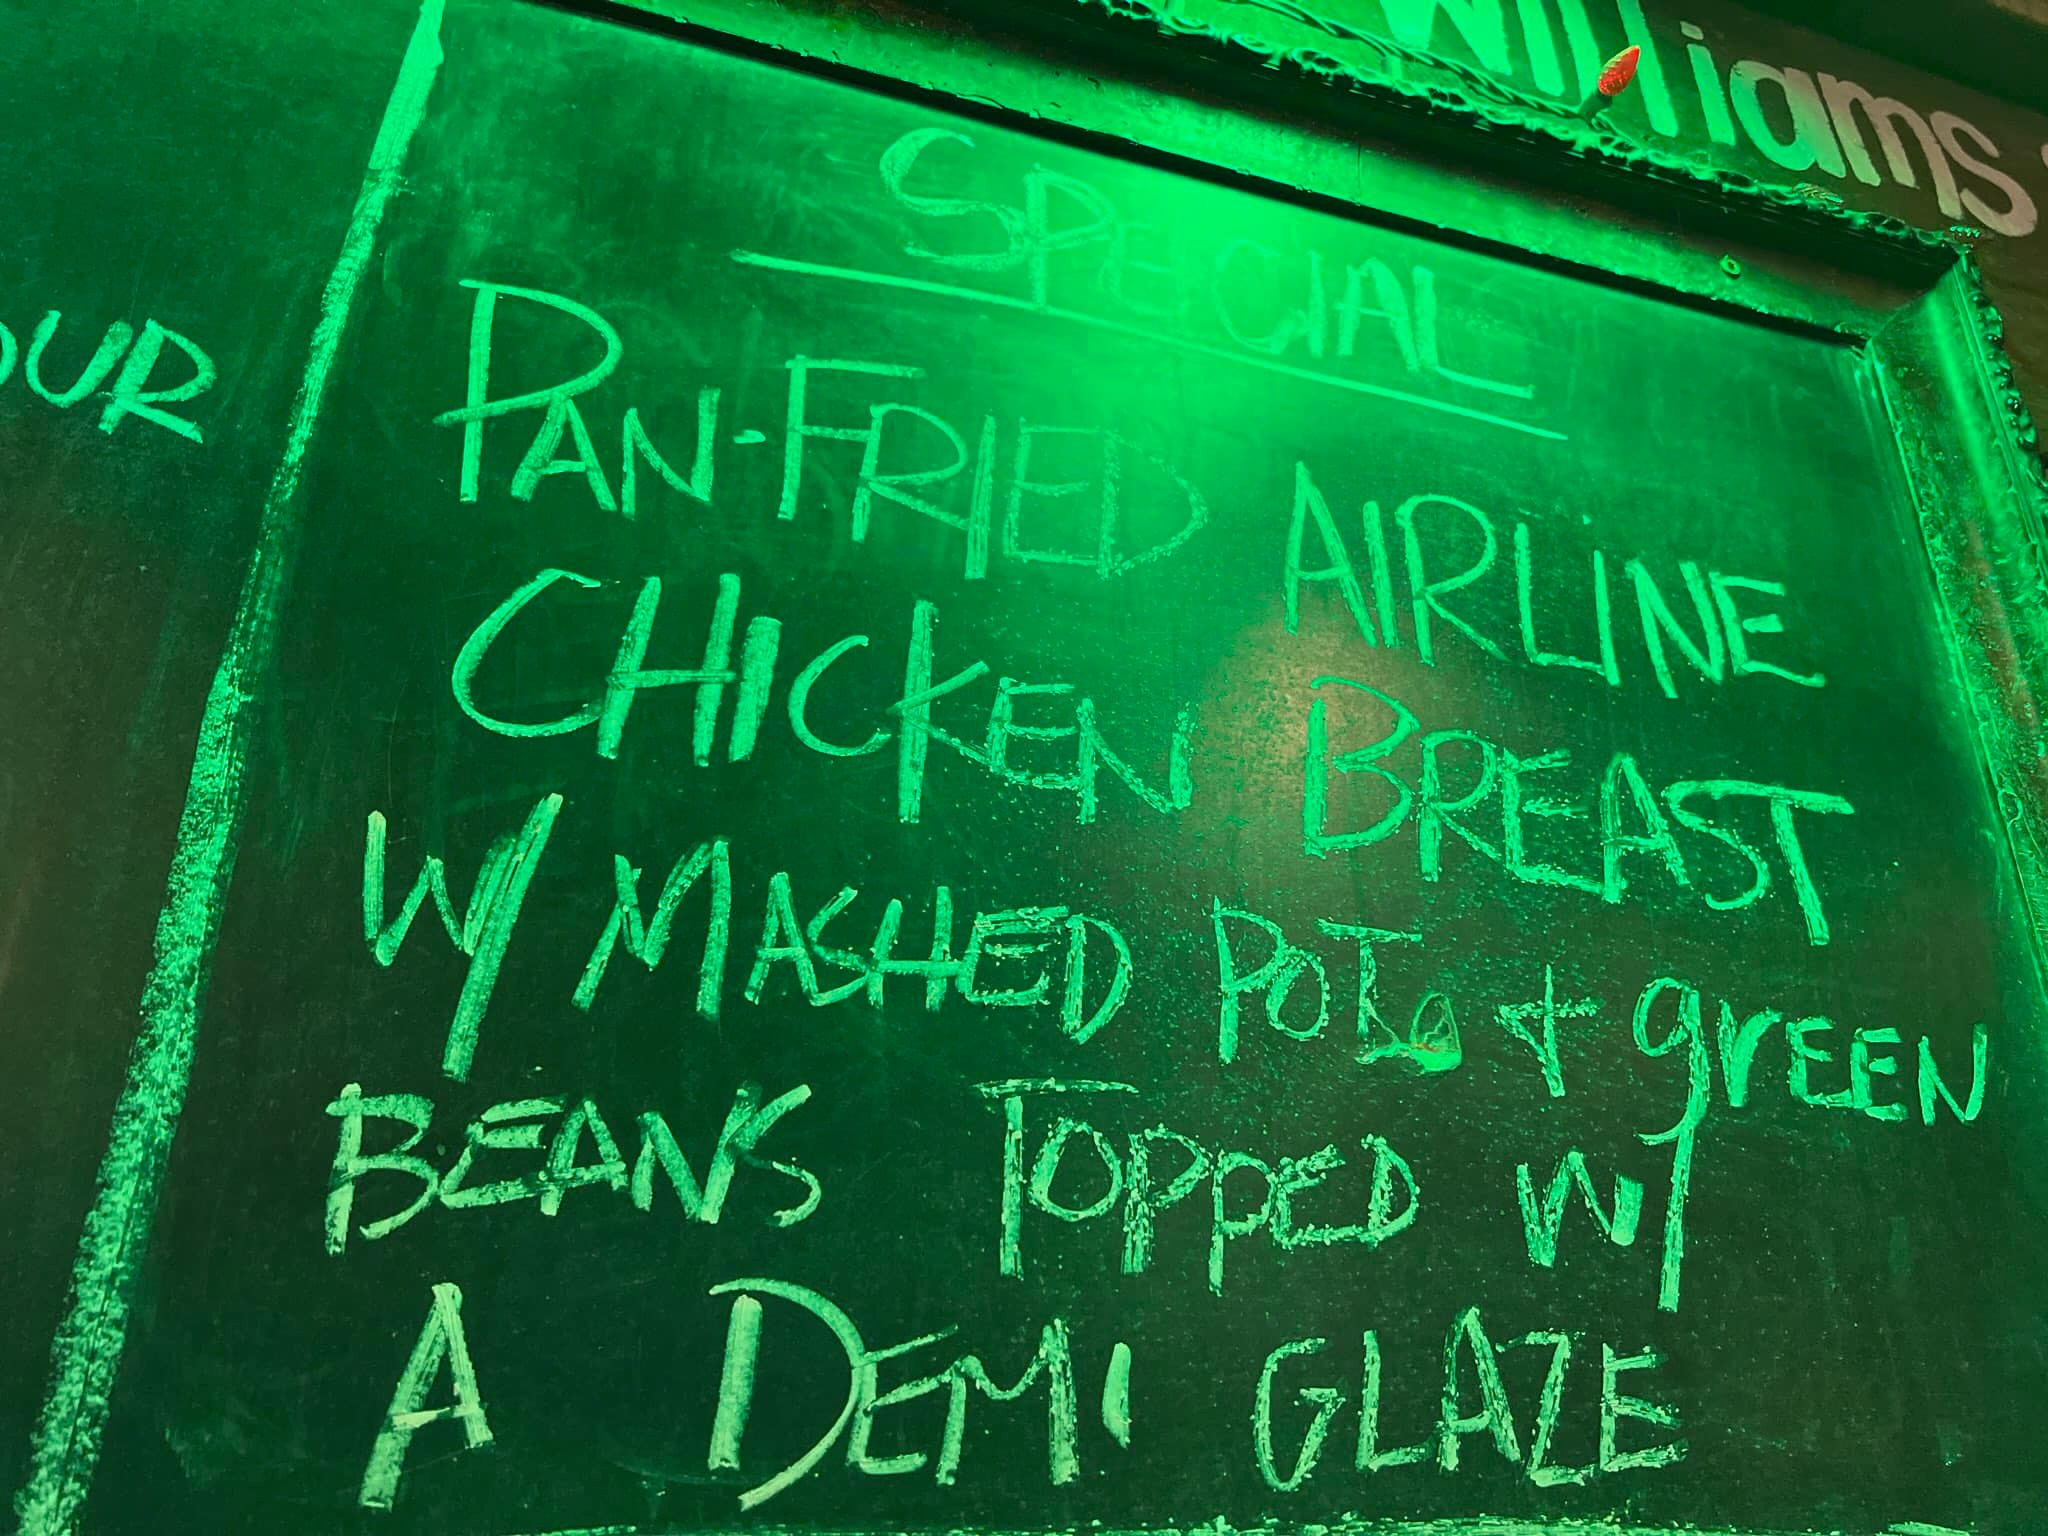 Williams
SPECIAL
OUR
PAN-FRIED AIRLINE
CHICKEN BREAST
W/ MASHED POTO + grEEN
BEANS TOPPED W/
A DEMI GLAZE